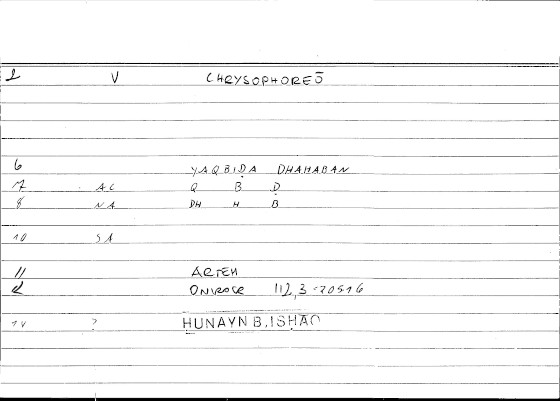 1 V CHRYSOPHOREŌ
6 YAQBIḌA DHAHABAN
7 AC Q B Ḍ
8 NA DH H B
10 SA
11 ARTEM
12 ONIROCR 112,3-20516
14 ? HUNAYN B. ISHAQ